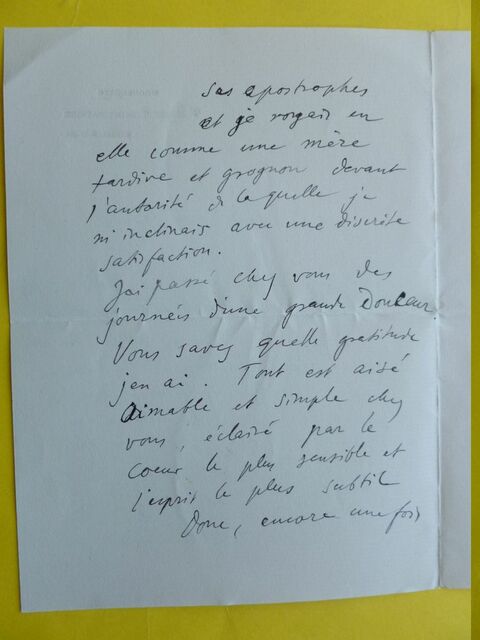 ses apostrophes
et je voyais en
elle comme une mère
tardive et grognon devant
l'autorité de laquelle je
m'inclinais avec une discrète
satisfaction.
J'ai passé chez vous des
journées d'une grande douceur.
Vous savez quelle gratitude
j'en ai. Tout est aisé
aimable et simple chez
vous, éclairé par le
coeur le plus sensible et
l'esprit le plus subtil
Donc, encore une fois